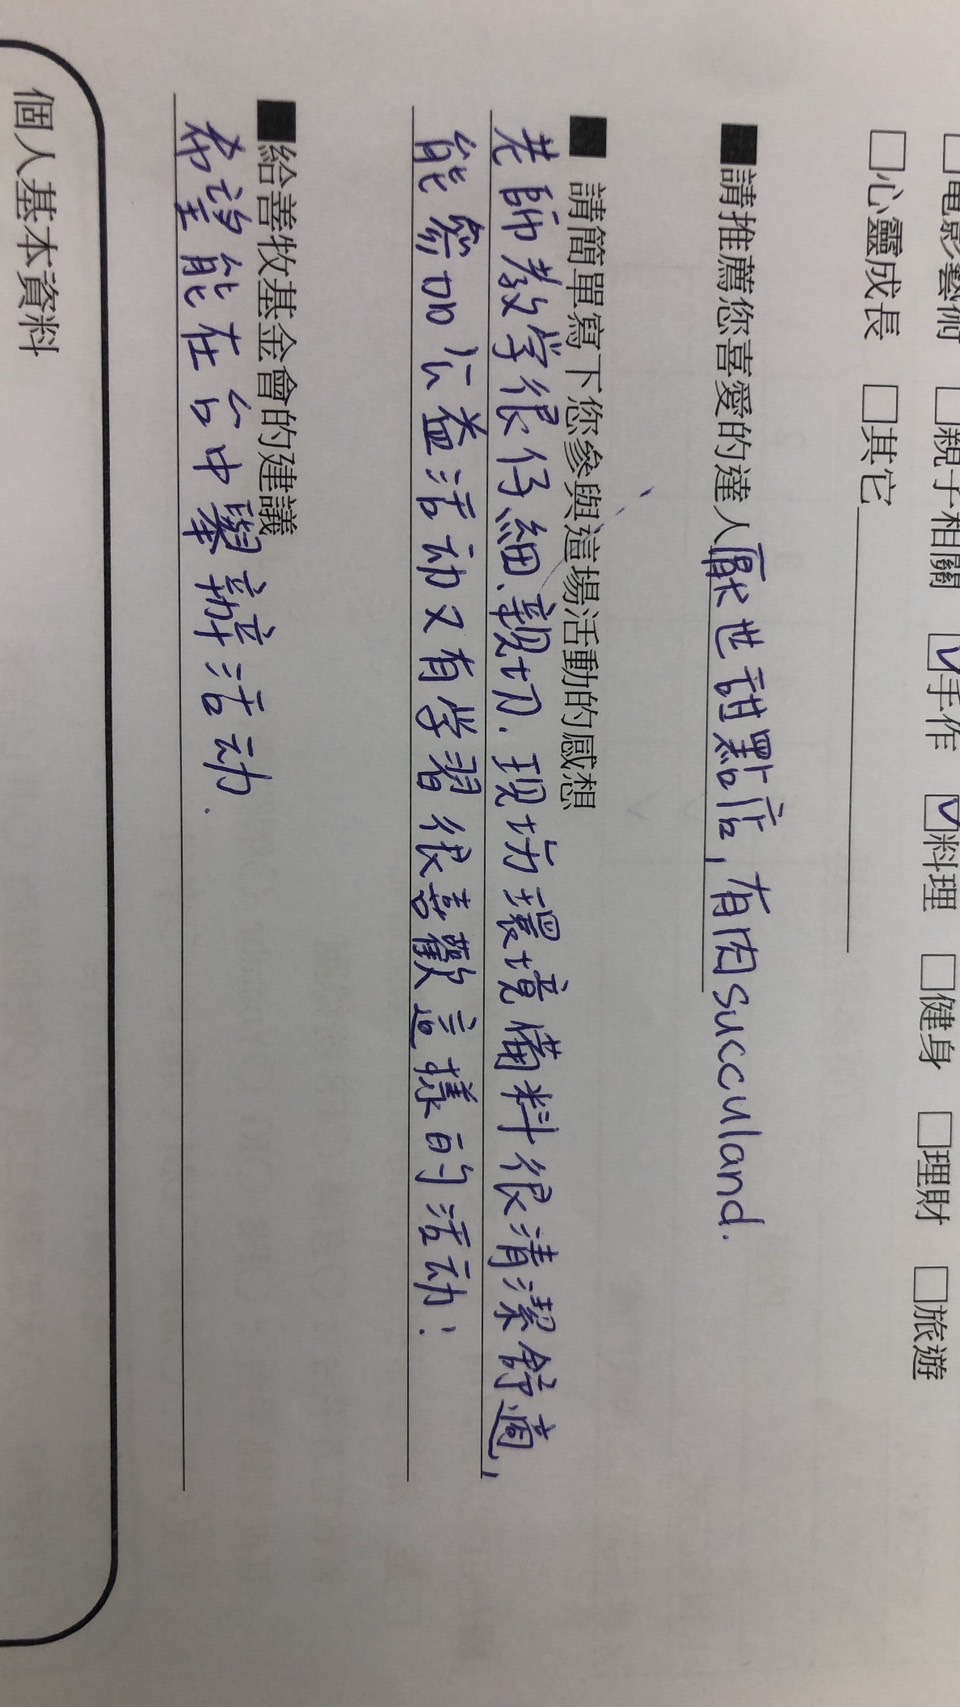 □電影藝術 □親子相關 ☑手作 ☑料理 □健身 □理財 □旅遊
□心靈成長 □其它
■請推薦您喜愛的達人 厭世甜點店,有肉succuland.
■ 請簡單寫下您參與這場活動的感想
老師教学很仔細、親切.現场環境備料很清潔舒適,
能參加公益活动又有学習很喜歡這樣的活动!
■給善牧基金會的建議
希望能在台中舉辦活动.
個人基本資料